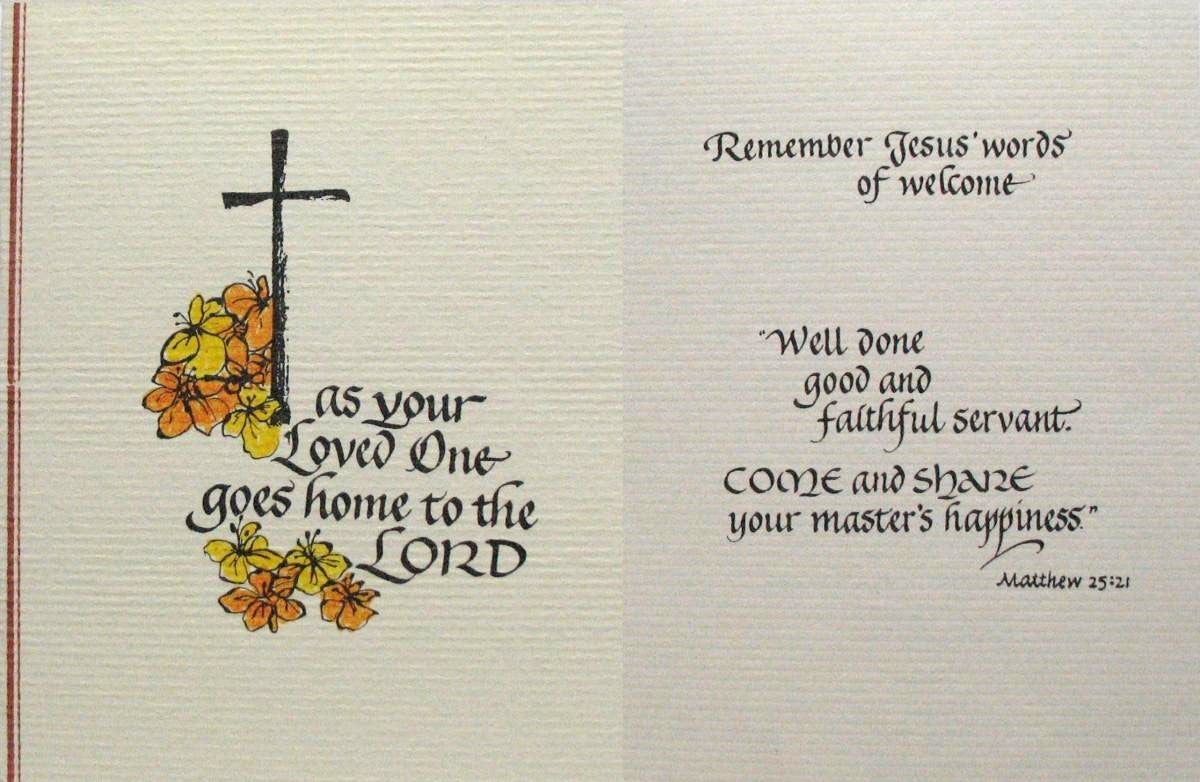 as your
Loved One
goes home to the
LORD
Remember Jesus' words
of welcome
"Well done
good and
faithful servant.
COME and SHARE
your master's happiness."
Matthew 25:21